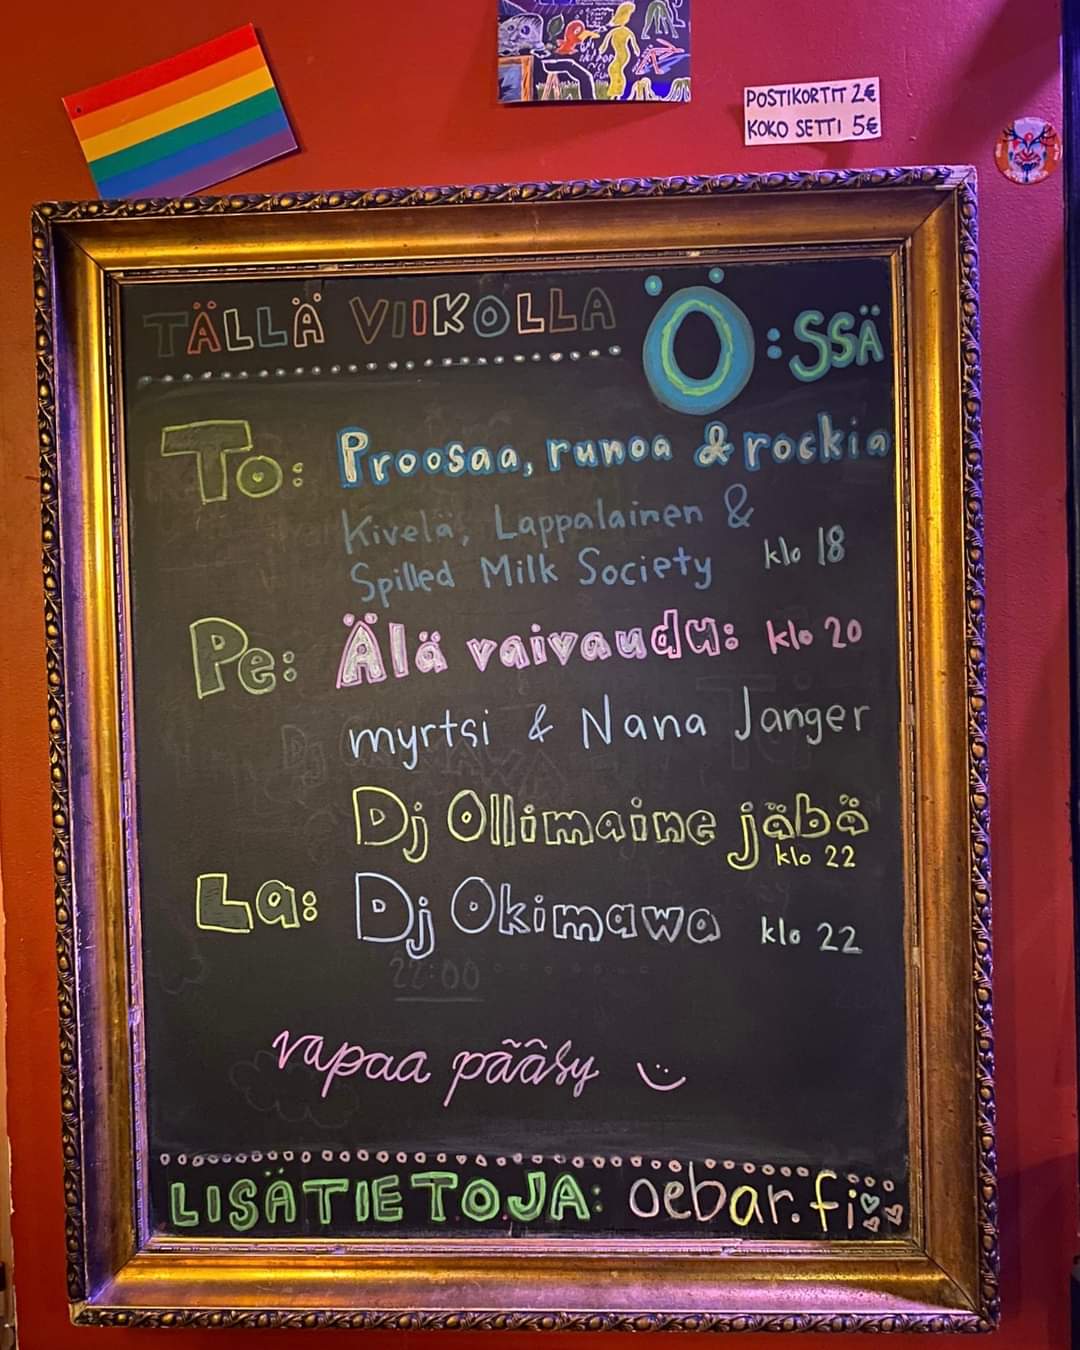 POSTIKORTIT 2€
KOKO SETTI 5€
TÄLLÄ VIIKOLLA Ö:SSÄ
To: Proosaa, runoa & rockia
Kivelä, Lappalainen &
Spilled Milk Society klo 18
Pe: Älä vaivaudu: klo 20
myrtsi & Nana Janger
Dj Ollimaine jäbä
klo 22
La: Dj Okimawa klo 22
22:00
vapaa pääsy
LISÄTIETOJA: oebar.fi